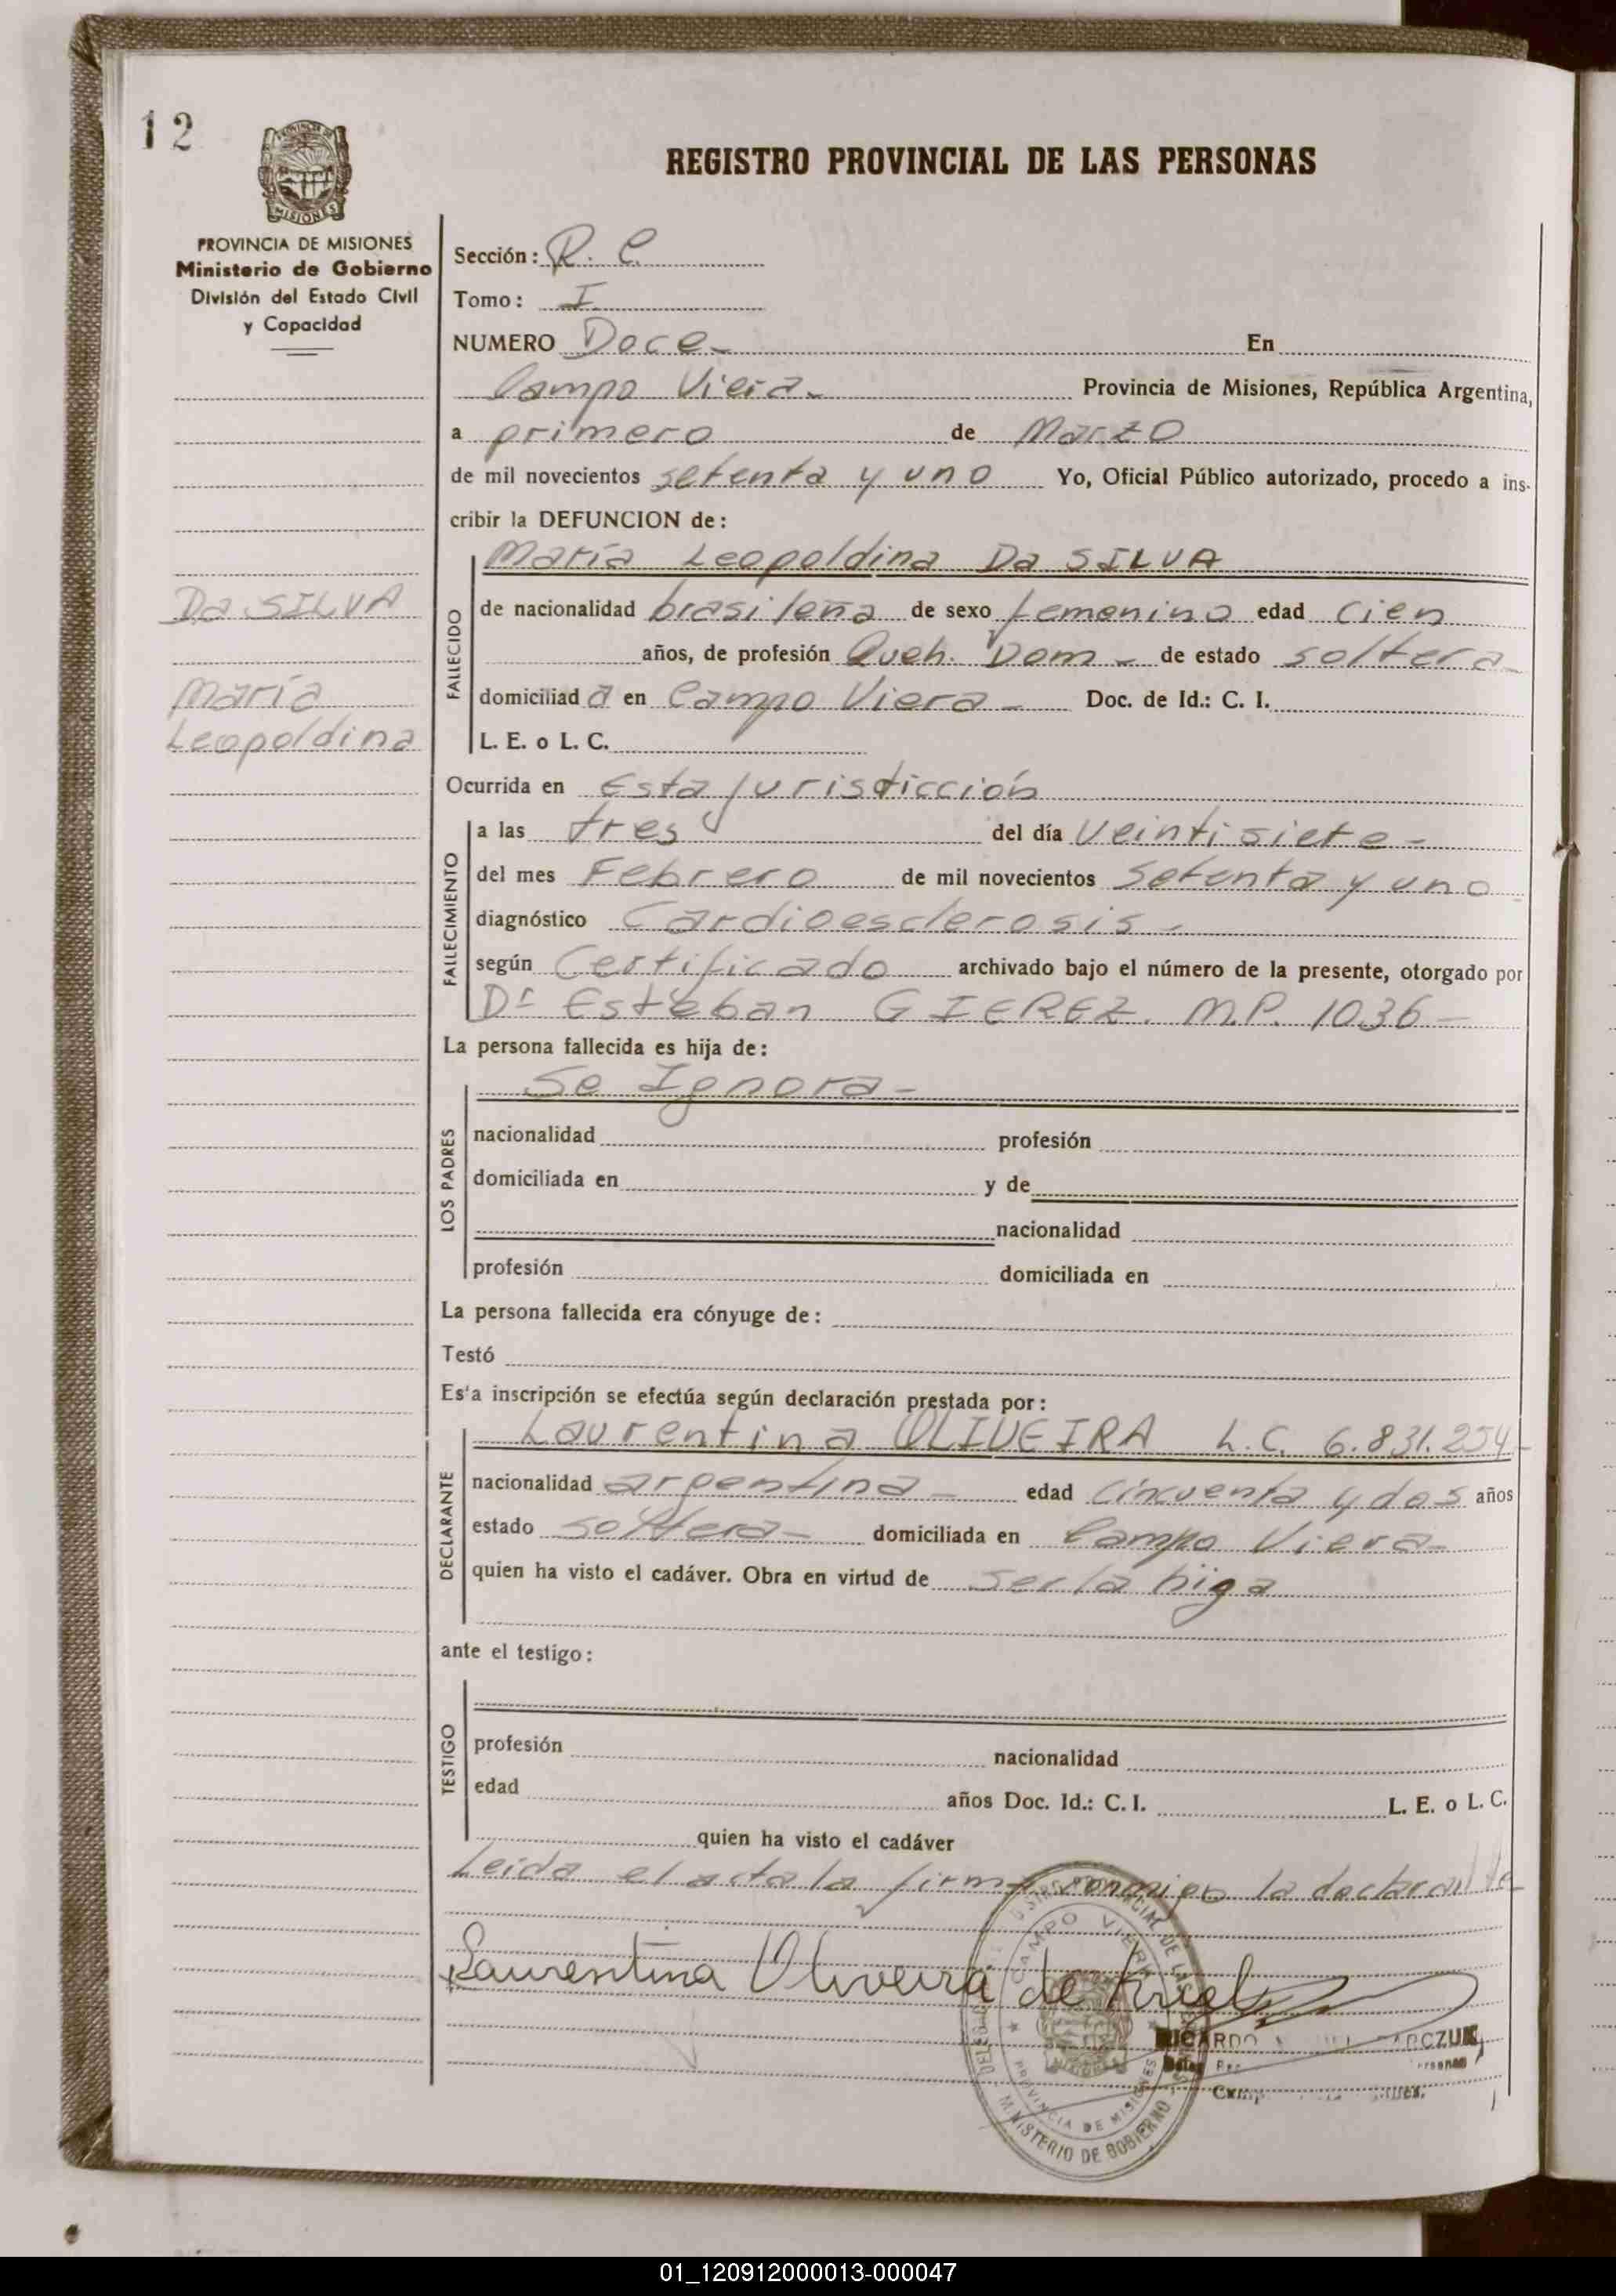 12
REGISTRO PROVINCIAL DE LAS PERSONAS
MISIONES
PROVINCIA DE MISIONES
Ministerio de Gobierno
División del Estado Civil
y Capacidad
Sección: R. C.
Tomo: I
NUMERO Doce- En
Campo Viera- Provincia de Misiones, República Argentina,
a primero de Marzo
de mil novecientos setenta y uno Yo, Oficial Público autorizado, procedo a ins-
cribir la DEFUNCION de:
Da SILVA
María
Leopoldina
FALLECIDO
María Leopoldina Da SILVA
de nacionalidad brasileña de sexo femenino edad cien
años, de profesión Queh. Dom- de estado soltera-
domiciliad a en Campo Viera- Doc. de Id.: C. I.
L. E. o L. C.
Ocurrida en Esta jurisdicción
FALLECIMIENTO
a las tres del día veintisiete-
del mes Febrero de mil novecientos setenta y uno
diagnóstico Cardioesclerosis-
según Certificado archivado bajo el número de la presente, otorgado por
Dr Esteban GIEREZ. M.P. 1036-
La persona fallecida es hija de:
LOS PADRES
Se Ignora-
nacionalidad profesión
domiciliada en y de
nacionalidad
profesión domiciliada en
La persona fallecida era cónyuge de:
Testó
Es'a inscripción se efectúa según declaración prestada por:
DECLARANTE
Laurentina OLIVEIRA L.C. 6.831.254-
nacionalidad argentina- edad cincuenta y dos años
estado soltera- domiciliada en Campo Viera-
quien ha visto el cadáver. Obra en virtud de ser la higa
ante el testigo:
TESTIGO
profesión nacionalidad
edad años Doc. Id.: C. I. L. E. o L. C.
quien ha visto el cadáver
Leida el acta la firma conmigo la declarante
Laurentina Oliveira de
CAMPO VIERA
PROVINCIA DE MISIONES
MINISTERIO DE GOBIERNO
RICARDO
01_120912000013-000047